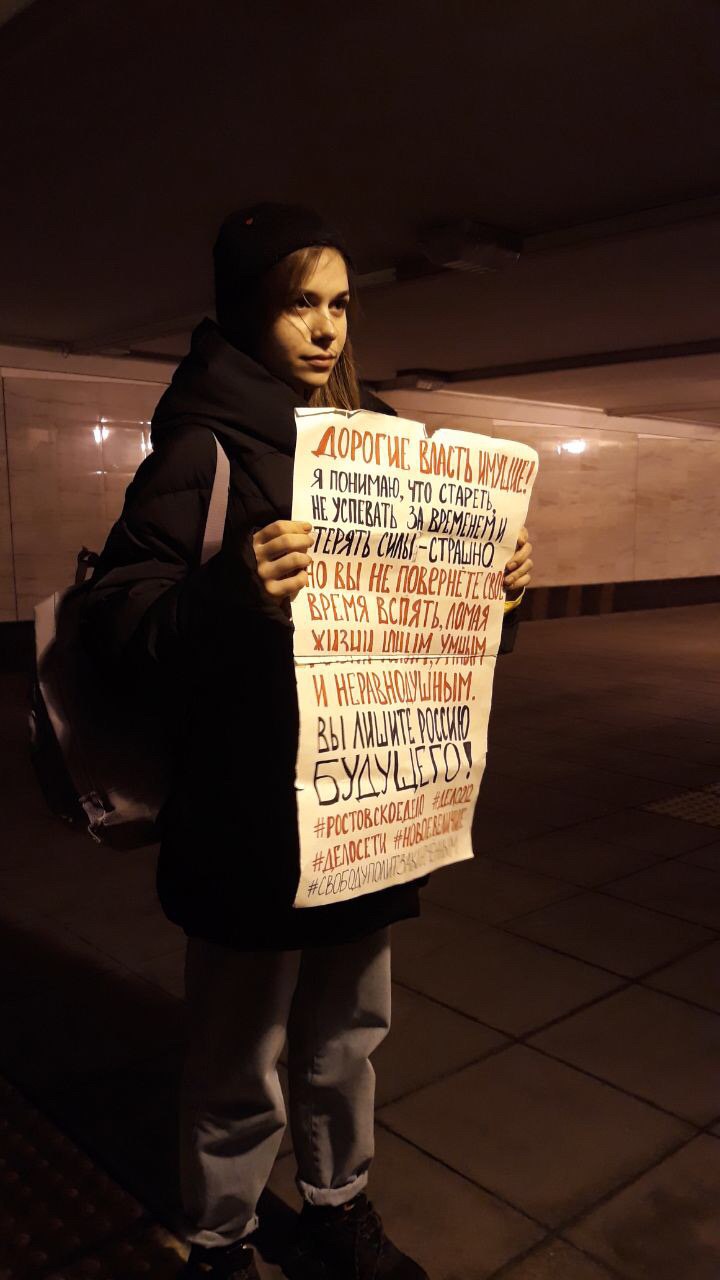 ДОРОГИЕ ВЛАСТЬ ИМУЩИЕ!
Я ПОНИМАЮ, ЧТО СТАРЕТЬ,
НЕ УСПЕВАТЬ ЗА ВРЕМЕНЕМ И
ТЕРЯТЬ СИЛЫ – СТРАШНО.
НО ВЫ НЕ ПОВЕРНЁТЕ СВОЁ
ВРЕМЯ ВСПЯТЬ, ЛОМАЯ
ЖИЗНИ ЮНЫМ, УМНЫМ
И НЕРАВНОДУШНЫМ.
ВЫ ЛИШИТЕ РОССИЮ
БУДУЩЕГО!
#РОСТОВСКОЕДЕЛО #ДЕЛО212
#ДЕЛОСЕТИ #НОВОЕВЕЛИЧИЕ
#СВОБОДУПОЛИТЗАКЛЮЧЁННЫМ